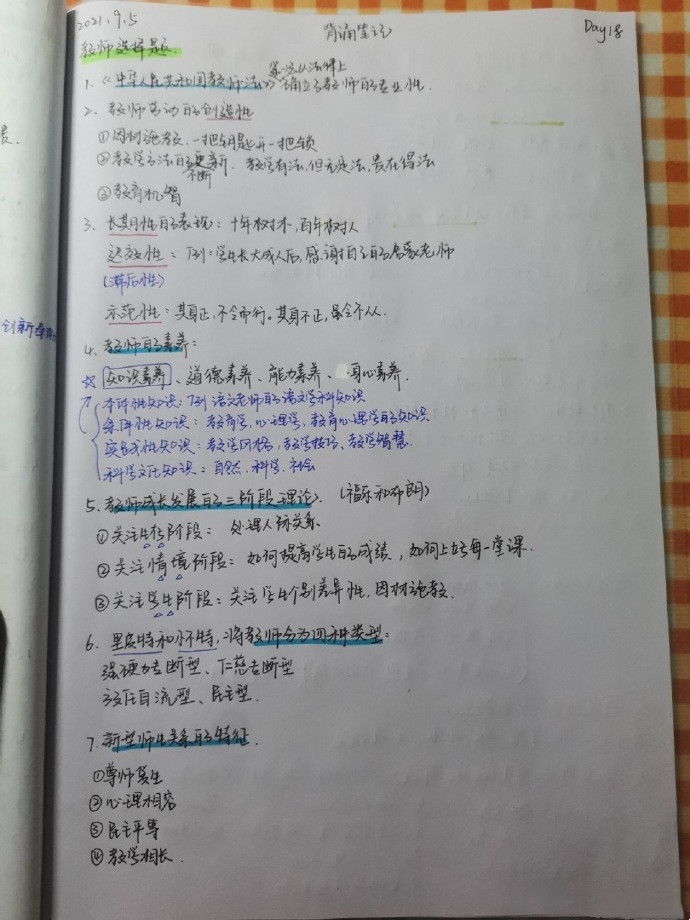 2021.9.5
背诵笔记
Day18
教师选择题.
1.《中华人民共和国教师法》第一次从法律上确立了教师的专业性.
2. 教师劳动的创造性
①因材施教、一把钥匙开一把锁
②教学方法的不断更新. 教学有法,但无定法,贵在得法
③教育机智
3. 长期性的表现:十年树木,百年树人
迟效性:例:学生长大成人后,感谢自己的启蒙老师
(滞后性)
示范性:其身正,不令而行。其身不正,虽令不从.
创新
4. 教师的素养:
☆知识素养、道德素养、能力素养、身心素养.
本体性知识:例 语文老师的语文学科知识
条件性知识:教育学,心理学,教育心理学的知识
实践性知识:教学风格,教学技巧、教学智慧.
科学文化知识:自然、科学、社会
5. 教师成长发展的三阶段理论.(福勒和布朗)
①关注生存阶段: 处理人际关系
②关注情境阶段:如何提高学生的成绩,如何上好每一堂课.
③关注学生阶段:关注学生个别差异性,因材施教.
6. 里皮特和怀特,将教师分为四种类型:
强硬专断型、仁慈专断型
放任自流型、民主型.
7.新型师生关系的特征.
①尊师爱生
②心理相容
③民主平等
④教学相长.